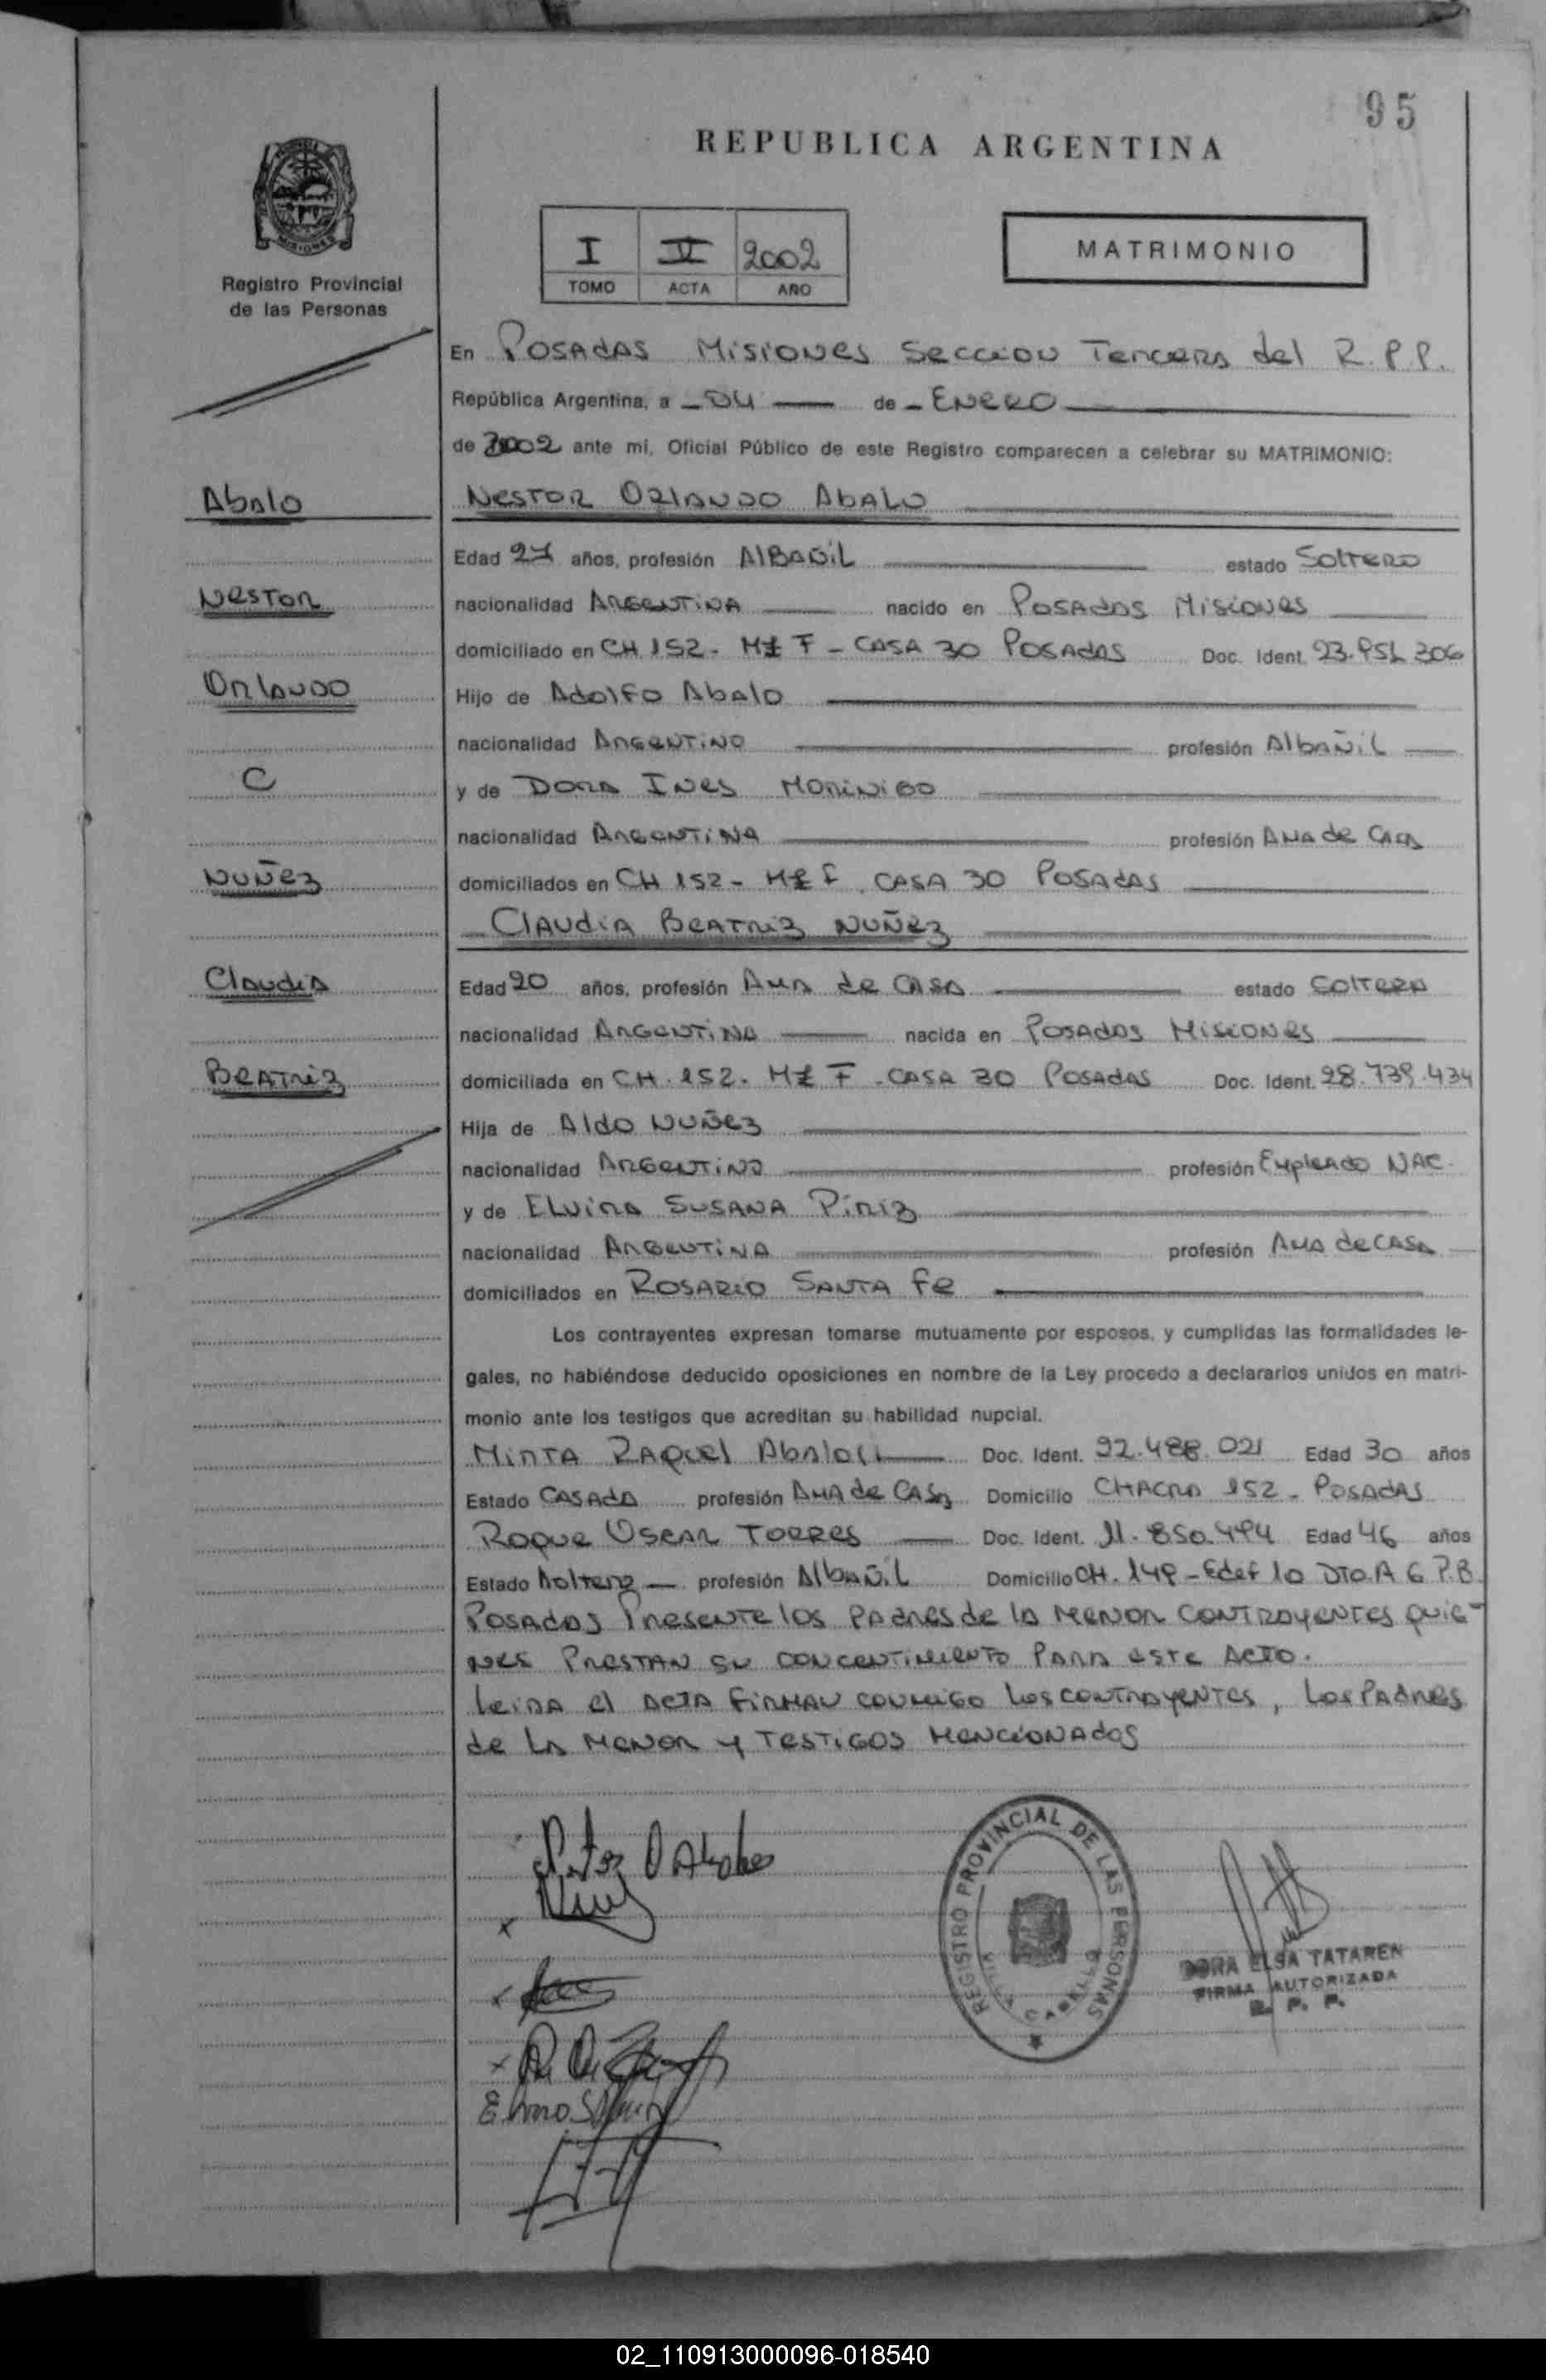 95
REPUBLICA ARGENTINA
MISIONES
Registro Provincial
de las Personas
I II 2002
TOMO ACTA AÑO
MATRIMONIO
En POSADAS MISIONES SECCION TERCERA del R.P.P.
República Argentina, a - 04 — de - ENERO
de 2002 ante mi, Oficial Público de este Registro comparecen a celebrar su MATRIMONIO:
Abalo
NESTOR ORLANDO ABALO
Edad 27 años, profesión AlBAÑiL estado SOLTERO
Nestor
nacionalidad ARGENTINA nacido en POSADAS MISIONES
domiciliado en CH 152 - MZ F - CASA 30 POSADAS Doc. Ident. 306
Orlando
Hijo de Adolfo Abalo
nacionalidad ARGENTINO profesión AlbAÑiL
C
y de DORA INES MORINIGO
nacionalidad ARGENTINA profesión AMA de CASA
NUÑEZ
domiciliados en CH 152 - MZ F, CASA 30 POSADAS
CLAUDIA BEATRIZ NUÑEZ
Claudia
Edad 20 años, profesión AMA de CASA estado SOLTERA
nacionalidad ARGENTINA nacida en POSADAS MISIONES
BEATRIZ
domiciliada en CH. 152. MZ F. CASA 30 POSADAS Doc. Ident. 28.739.434
Hija de Aldo NUÑEZ
nacionalidad ARGENTINO profesión EMPLEADO NAC.
y de ELVIRA SUSANA PIRIZ
nacionalidad ARGENTINA profesión AMA de CASA
domiciliados en ROSARIO SANTA Fe
Los contrayentes expresan tomarse mutuamente por esposos, y cumplidas las formalidades le-
gales, no habiéndose deducido oposiciones en nombre de la Ley procedo a declararlos unidos en matri-
monio ante los testigos que acreditan su habilidad nupcial.
MIRTA RAQUEL Doc. Ident. 92.488.021 Edad 30 años
Estado CASADA profesión AMA de CASA Domicilio CHACRA 152 - POSADAS
ROQUE OSCAR TORRES Doc. Ident. 11.850.494 Edad 46 años
Estado profesión AlbAÑiL Domicilio CH. 149 - Edef 10 DTO A 6 P.B.
POSADAS PRESENTE los PADRES de LA MENOR CONTRAYENTES QUIE-
NES PRESTAN SU CONCENTIMIENTO PARA ESTE ACTO.
LEIDA el ACTA FIRMAN CONMIGO LOS CONTRAYENTES, LOS PADRES
de LA MENOR y TESTIGOS MENCIONADOS
REGISTRO PROVINCIAL DE LAS PERSONAS
VILLA CABELLO
DORA ELSA TATAREN
FIRMA AUTORIZADA
R. P. P.
02_110913000096-018540